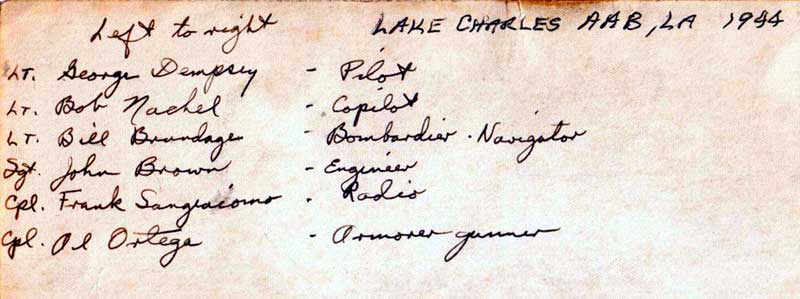 Left to right LAKE CHARLES AAB, LA 1944
LT. George Dempsey - Pilot
LT. Bob Nachel - Copilot
LT. Bill Brundage - Bombardier - Navigator
Sgt. John Brown - Engineer
Cpl. Frank Sangiacomo - Radio
Cpl. Al Ortega - Armorer gunner